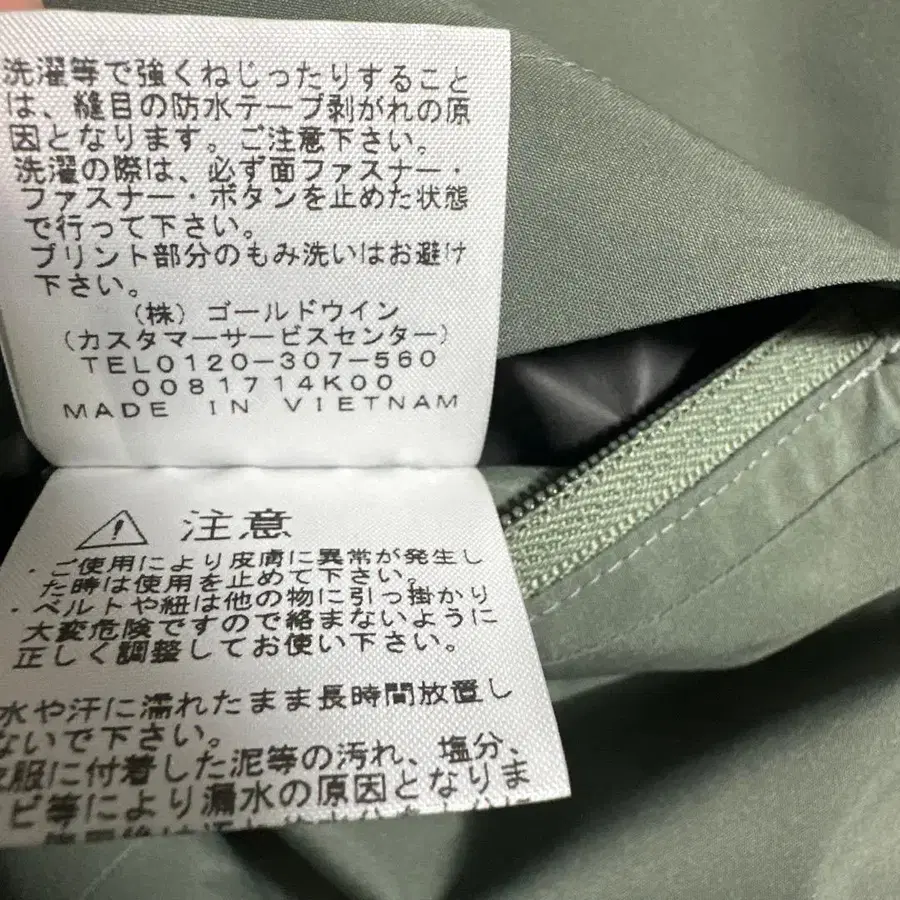 洗濯等で強くねじったりすること
は、縫目の防水テープ剥がれの原
因となります。ご注意下さい。
洗濯の際は、必ず面ファスナー・
ファスナー・ボタンを止めた状態
で行って下さい。
プリント部分のもみ洗いはお避け
下さい。
(株) ゴールドウイン
(カスタマーサービスセンター)
TEL0120-307-560
0081714K00
MADE IN VIETNAM
注意
・ご使用により皮膚に異常が発生し
た時は使用を止めて下さい。
・ベルトや紐は他の物に引っ掛かり
大変危険ですので絡まないように
正しく調整してお使い下さい。
水や汗に濡れたまま長時間放置し
ないで下さい。
衣服に付着した泥等の汚れ、塩分、
ビ等により漏水の原因となりま